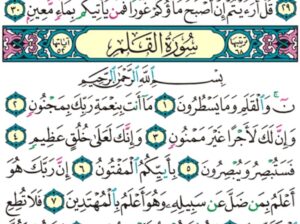 ٢٩ قُلْ أَرَءَيْتُمْ إِنْ أَصْبَحَ مَآؤُكُمْ غَوْرًا فَمَن يَأْتِيكُم بِمَآءٍ مَّعِينٍ ٣٠
سُورَةُ الْقَلَمِ
بِسْمِ ٱللَّهِ ٱلرَّحْمَٰنِ ٱلرَّحِيمِ
نٓ وَٱلْقَلَمِ وَمَا يَسْطُرُونَ ١ مَآ أَنتَ بِنِعْمَةِ رَبِّكَ بِمَجْنُونٍ ٢
وَإِنَّ لَكَ لَأَجْرًا غَيْرَ مَمْنُونٍ ٣ وَإِنَّكَ لَعَلَىٰ خُلُقٍ عَظِيمٍ ٤
فَسَتُبْصِرُ وَيُبْصِرُونَ ٥ بِأَييِّكُمُ ٱلْمَفْتُونُ ٦ إِنَّ رَبَّكَ هُوَ
أَعْلَمُ بِمَن ضَلَّ عَن سَبِيلِهِۦ وَهُوَ أَعْلَمُ بِٱلْمُهْتَدِينَ ٧ فَلَا تُطِعِ